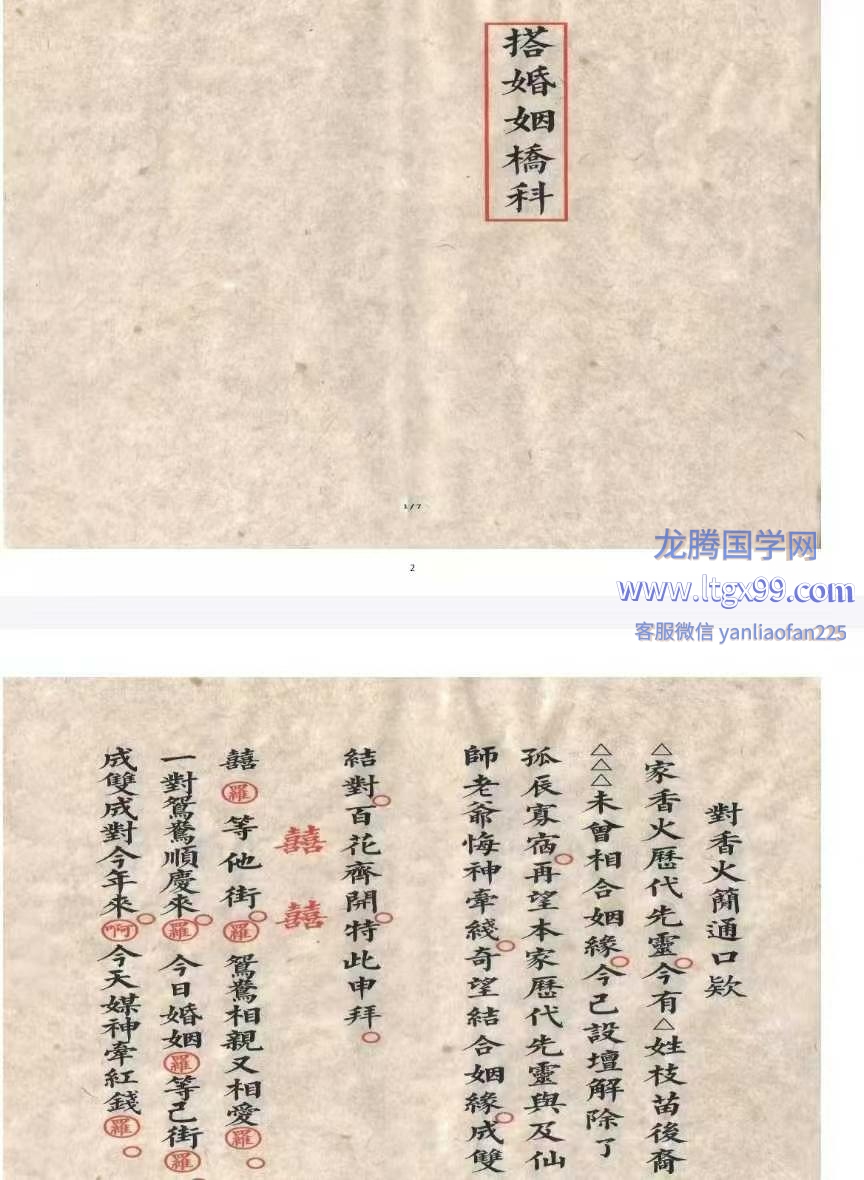 搭婚姻橋科
1 / 7
龙腾国学网
2
www.ltgx99.com
客服微信 yanliaofan225
對香火簡通口欵
△家香火歷代先靈○今有△姓枝苗後裔
△△△未曾相合姻緣○今已設壇解除了
孤辰寡宿○再望本家歷代先靈與及仙
師老爺悔神牽綫○奇望結合姻緣○成雙
結對○百花齊開○特此申拜○
囍 囍
囍羅等他街○羅鴛鴦相親又相愛羅○
一對鴛鴦順慶來○羅今日婚姻羅等己街羅
成雙成對今年來○啊今天媒神牽紅錢羅○